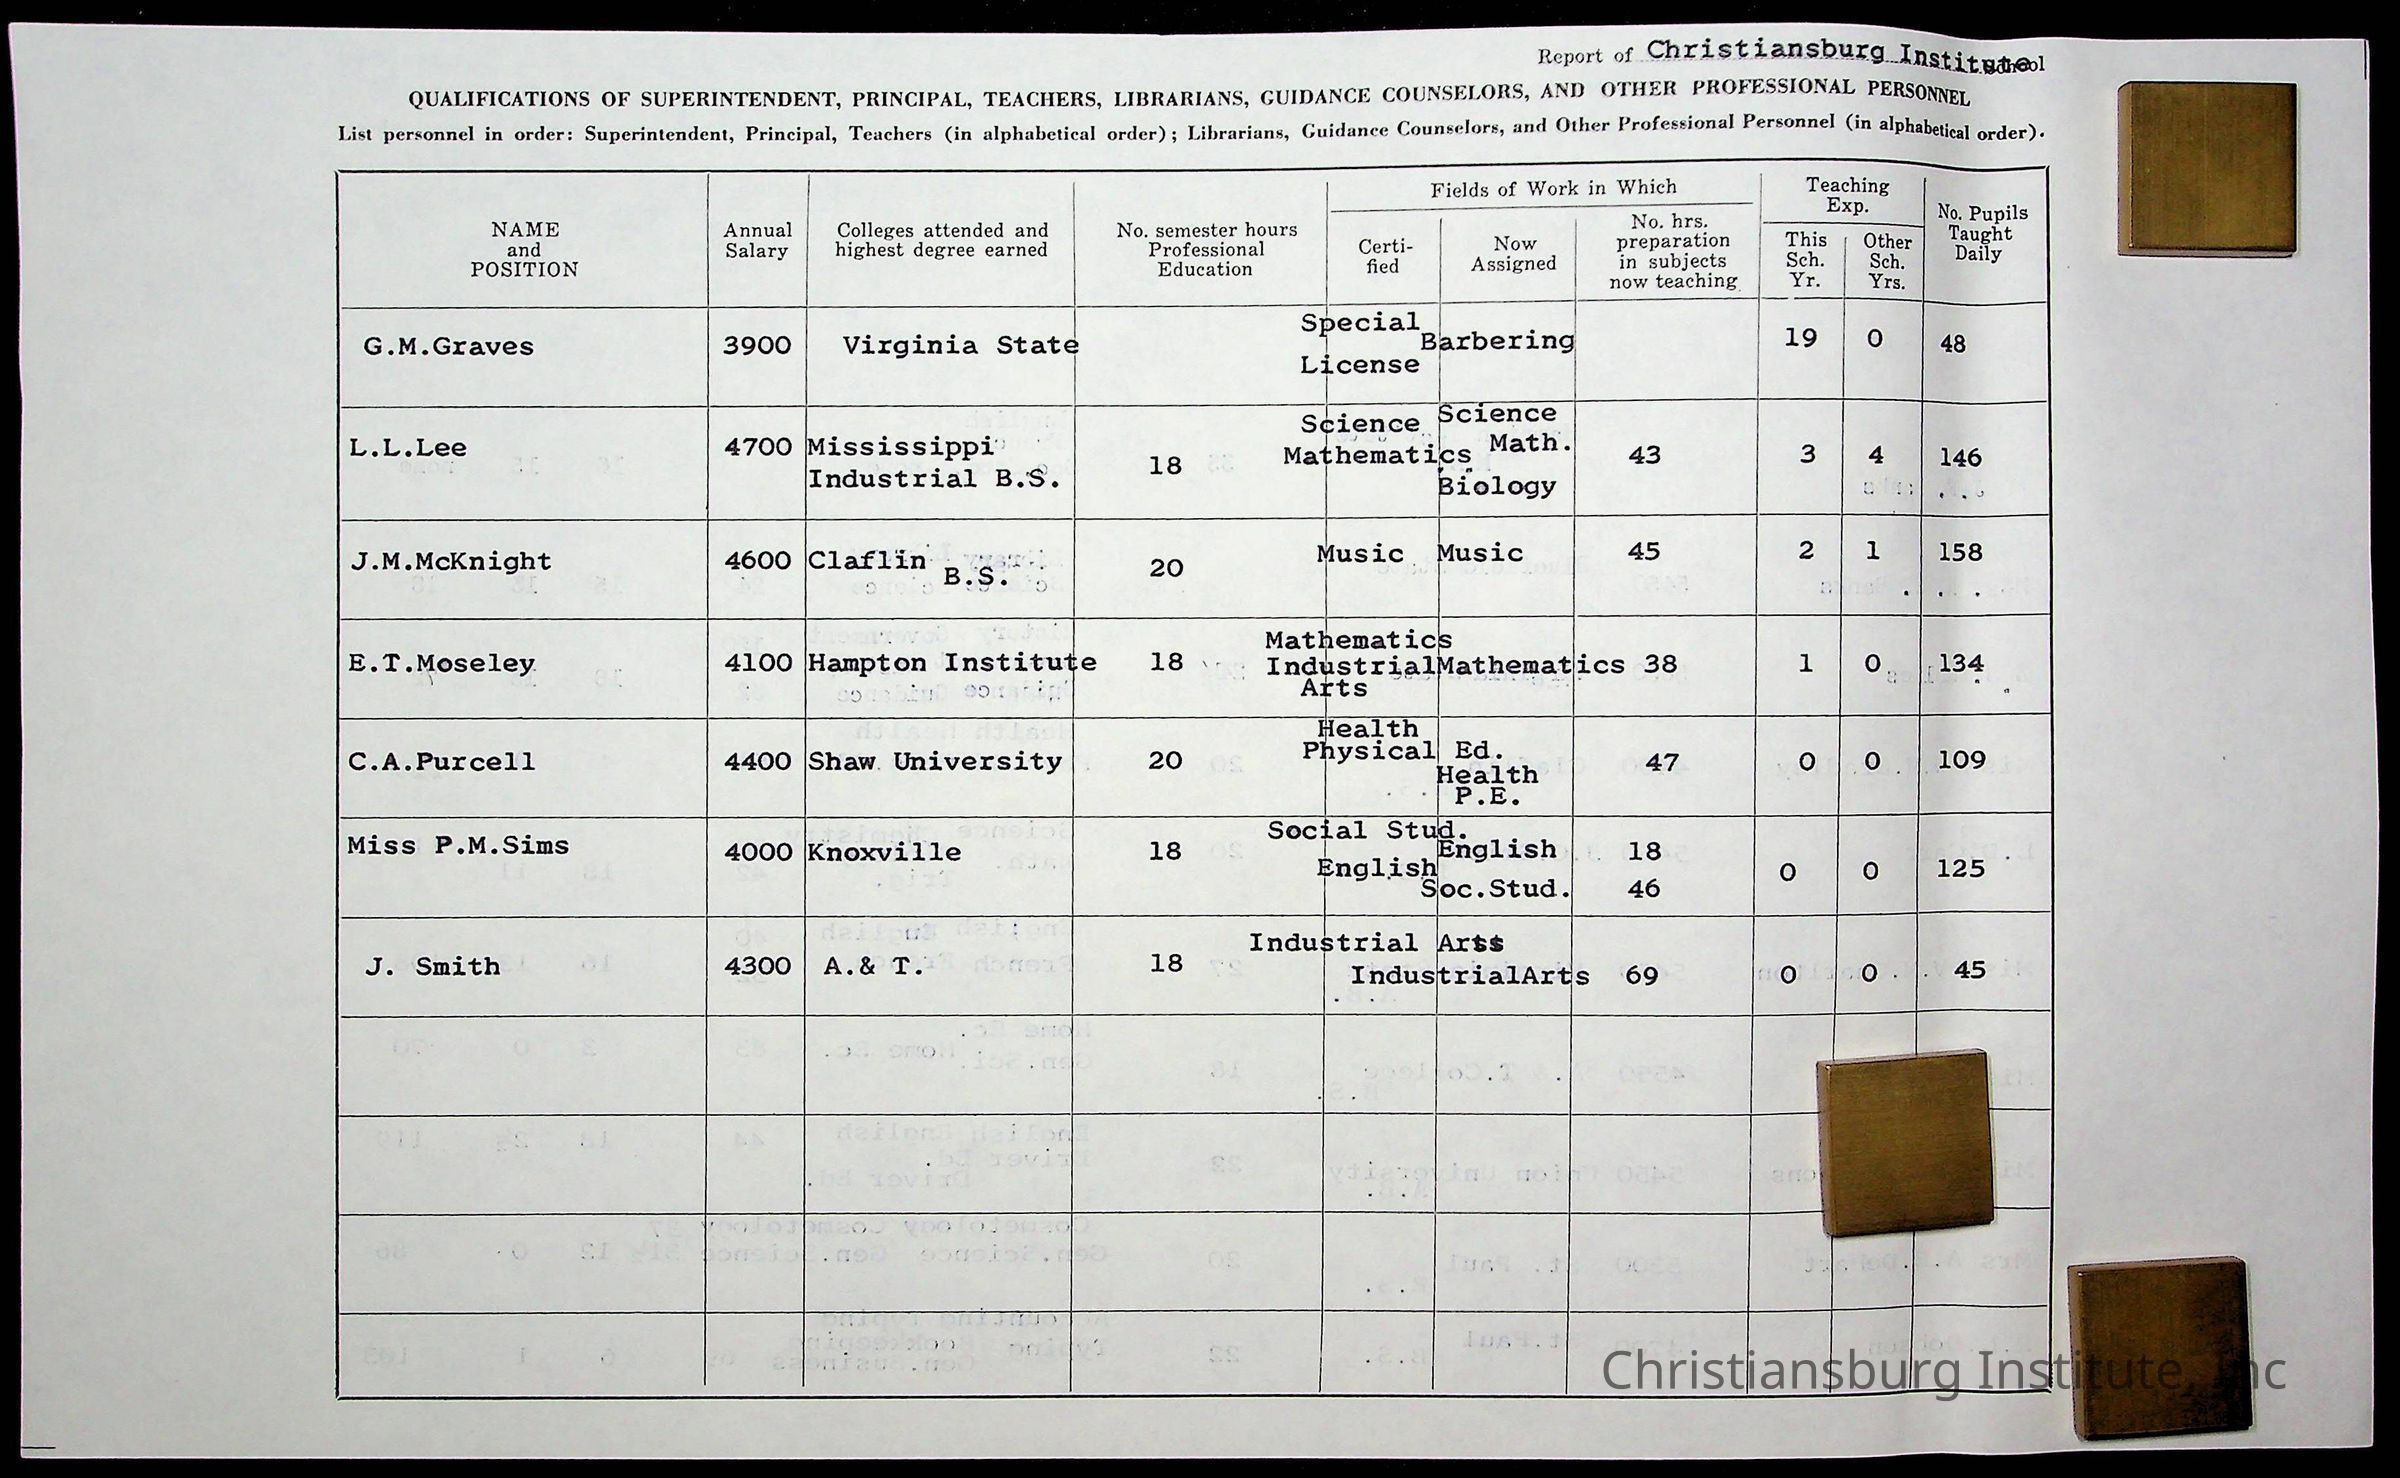 Report of Christiansburg Institute School
QUALIFICATIONS OF SUPERINTENDENT, PRINCIPAL, TEACHERS, LIBRARIANS, GUIDANCE COUNSELORS, AND OTHER PROFESSIONAL PERSONNEL
List personnel in order: Superintendent, Principal, Teachers (in alphabetical order); Librarians, Guidance Counselors, and Other Professional Personnel (in alphabetical order).
NAME
and
POSITION
Annual
Salary
Colleges attended and
highest degree earned
No. semester hours
Professional
Education
Fields of Work in Which
Certi-
fied
Now
Assigned
No. hrs.
preparation
in subjects
now teaching
Teaching
Exp.
This
Sch.
Yr.
Other
Sch.
Yrs.
No. Pupils
Taught
Daily
G.M.Graves 3900 Virginia State
Special
License
Barbering
19 0 48
L.L.Lee 4700 Mississippi
Industrial B.S.
18
Science
Mathematics
Science
Math.
Biology
43 3 4 146
J.M.McKnight 4600 Claflin
B.S.
20 Music Music 45 2 1 158
E.T.Moseley 4100 Hampton Institute 18
Mathematics
Industrial
Arts
Mathematics 38 1 0 134
C.A.Purcell 4400 Shaw University 20
Health
Physical Ed.
Health
P.E.
47 0 0 109
Miss P.M.Sims 4000 Knoxville 18
Social Stud.
English
English 18
Soc.Stud. 46
0 0 125
J. Smith 4300 A.& T. 18
Industrial Arts
IndustrialArts 69 0 0 45
Christiansburg Institute, Inc